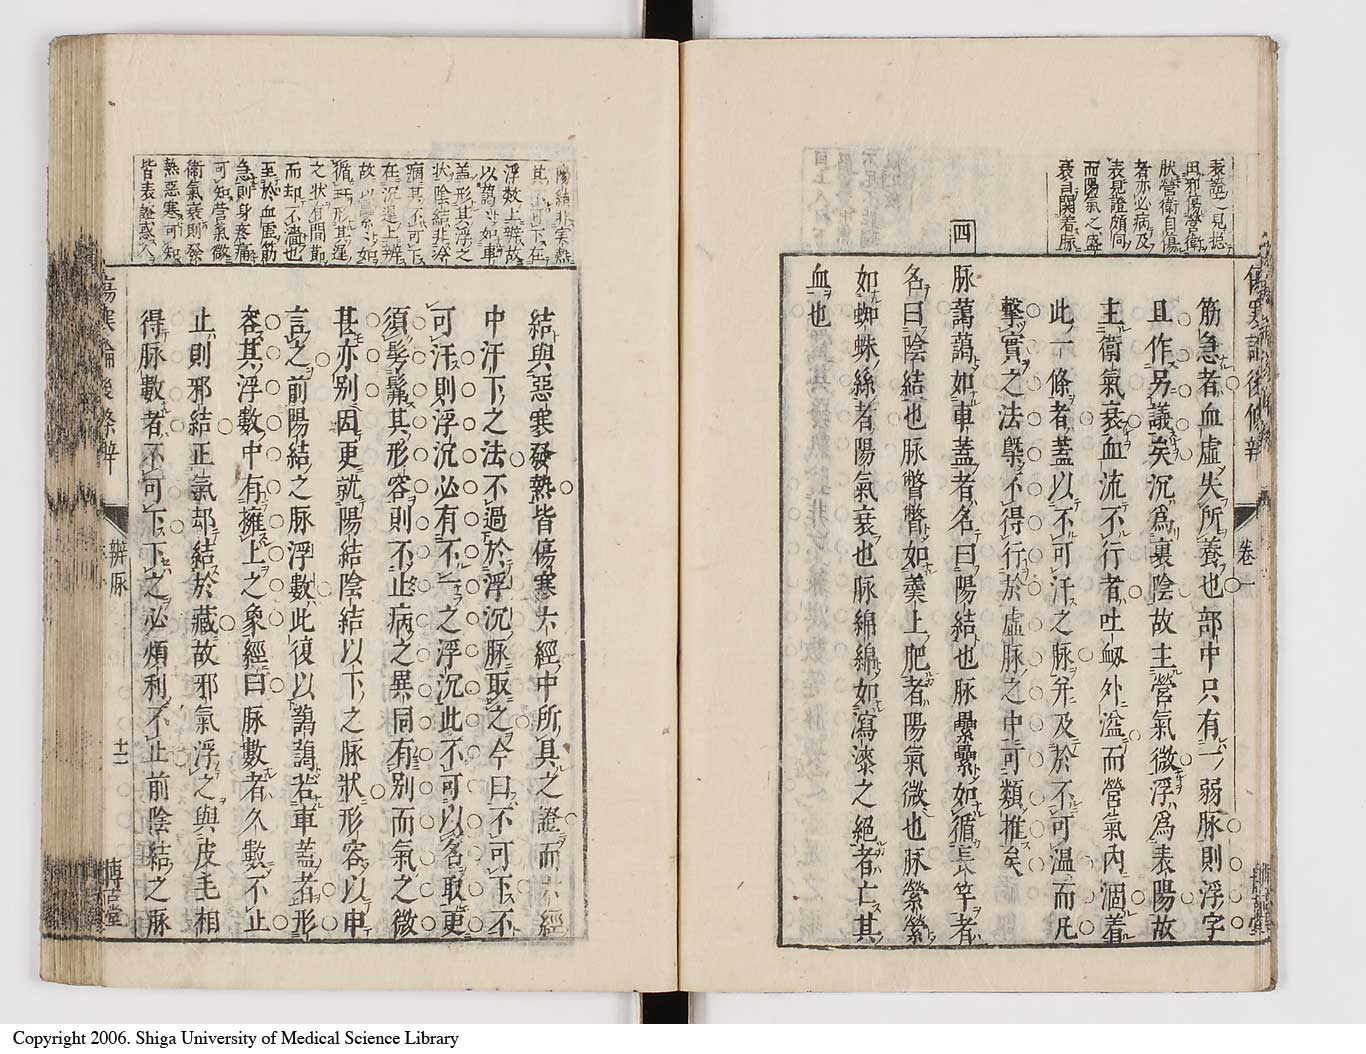 傷寒論後條辨
卷一
筋急者血虛失所養也部中只有一弱脉則浮字
且作另議矣沉爲裏陰故主營氣微浮爲表陽故
主衛氣衰血流不行者吐衂外溢而營氣內涸着
此一條者蓋以不可汗之脉并及於不可溫而凡
擊實之法槩不得行於虛脉之中可類推矣
四
脉藹藹如車蓋者名曰陽結也脉纍纍如循長竿者
名曰陰結也脉瞥瞥如羹上肥者陽氣微也脉縈縈
如蜘蛛絲者陽氣衰也脉綿綿如瀉漆之絕者亡其
血也
表證一見挹
因邪傷營衛
狀營衛自傷
者亦必病及
表見證頗同
而陽氣之盛
衰自關着脉
結與惡寒發熱皆傷寒六經中所具之證而六經
中汗下之法不過於浮沉脉取之今曰不可下不
可汗則浮沉必有不一之浮沉此不可以名取更
須髣髴其形容則不止病之異同有別而氣之微
甚亦別因更就陽結陰結以下之脉狀形容以申
言之前陽結之脉浮數此復以藹藹若車蓋者形
容其浮數中有擁上之象經曰脉數者久數不止
止則邪結正氣却結於藏故邪氣浮之與皮毛相
得脉數者不可下下之必煩利不止前陰結之脉
陽結非實熱
其不可下在
浮數上辨故
以藹藹如車
蓋形其浮之
狀陰結非冷
痼其不可下
在沉遲上辨
故以纍纍如
循玕形其遲
之狀有間節
而却不濇也
至於血虛筋
急則身疼痛
可知營氣微
衛氣衰則發
熱惡寒可知
皆表證惑人
傷寒論後條辨
辨脉
十二
博古堂
Copyright 2006. Shiga University of Medical Science Library